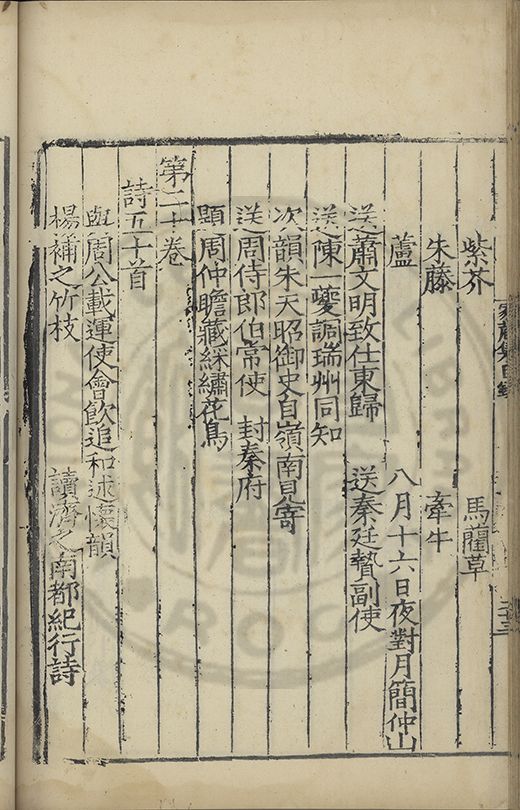 紫芥　馬藺草
朱藤　牽牛
蘆　八月十六日夜對月簡仲山
送蕭文明致仕東歸　送秦廷贄副使
送陳一夔調瑞州同知
次韻朱天昭御史自嶺南見寄
送周侍郎伯常使　封秦府
題周仲瞻藏綵繡花鳥
第二十卷
詩五十首
與周公載運使會飲追和述懷韻
楊補之竹枝　讀濟之南都紀行詩